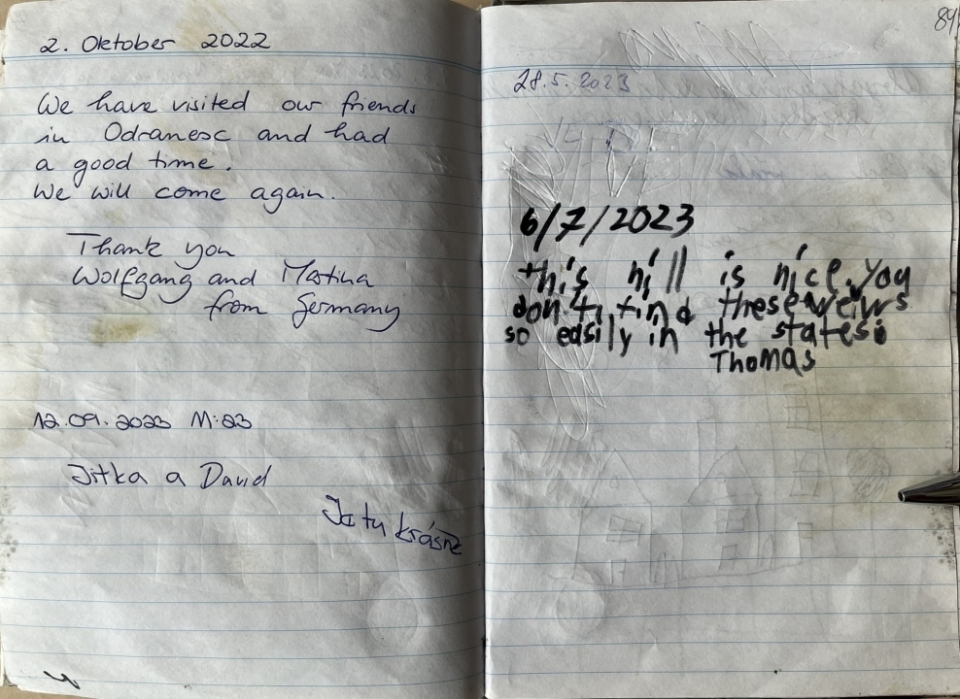 2. Oktober 2022
We have visited our friends
in Odranesc and had
a good time.
We will come again.
Thank you
Wolfgang and Martina
from Germany
12.09.2023 11:23
Jitka a David
Je tu krásně
84
28.5.2023
6/7/2023
this hill is nice. you
don't find these veiws
so easily in the states.
Thomas